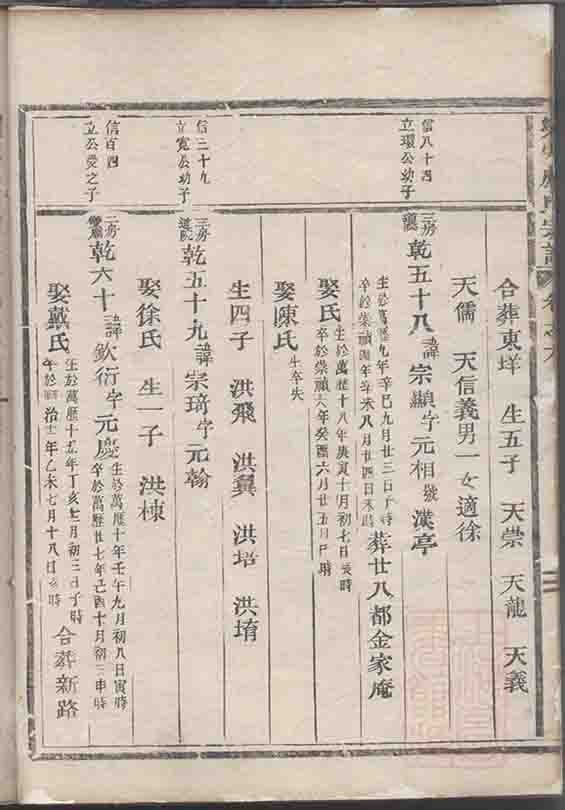 合葬東垟 生五子 天崇 天龍 天義
天儒 天信義男一女適徐
信八十四
立環公幼子
三房
乾五十八諱宗顯字元相號漢亭
生於萬歷九年辛巳九月廿三日子時
卒於崇禎四年辛未八月廿四日未時
葬廿八都金家庵
娶氏
生於萬歷十八年庚寅十月初七日 時
卒於崇禎六年癸酉六月廿五日 時
娶陳氏 生卒失
生四子 洪飛 洪翼 洪培 洪堉
信三十九
立寬公幼子
三房
乾五十九諱宗琦字元翰
娶徐氏 生一子 洪棟
信百四
立公受之子
三房
乾六十諱欽衍字元慶
生於萬歷十年壬午九月初八日寅時
卒於萬歷廿七年己酉十月初三申時
娶戴氏
生於萬歷十五年丁亥 月初三日子時
卒於順治十二年乙未七月十八日 時
合葬新路